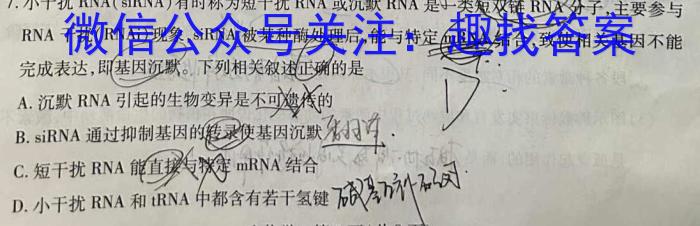 7.小干扰 RNA( siRNA)有时称为短干扰 RNA 或沉默 RNA 是一类短双链 RNA 分子,主要参与
RNA 干扰(RNAi)现象, siRNA 被某种酶处理后,能与特定 mRNA 结合,致使相关基因不能
微信公众号关注:趣找答案
完成表达,即基因沉默。下列相关叙述正确的是
A. 沉默 RNA 引起的生物变异是不可遗传的
B. siRNA 通过抑制基因的转录使基因沉默 翻译.
C. 短干扰 RNA 能直接与特定 mRNA 结合
D. 小干扰 RNA 和 tRNA 中都含有若干氢键 碱基互补配对.